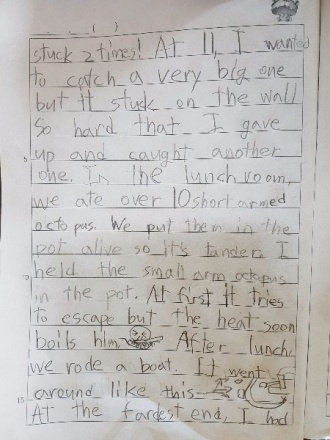 ( )
stuck 2 times! At 11, I wanted
to catch a very big one
but it stuck on the wall
So hard that I gave
5 up and caught another
one. In the lunch room,
we ate over 10 short armed
octopus. We put them in the
pot alive so it's tander. I
10 held the small arm octopus
in the pot. At first it tries
to escape but the heat soon
boils him After lunch,
we rode a boat. It went
15 around like this
At the fardest end, I had